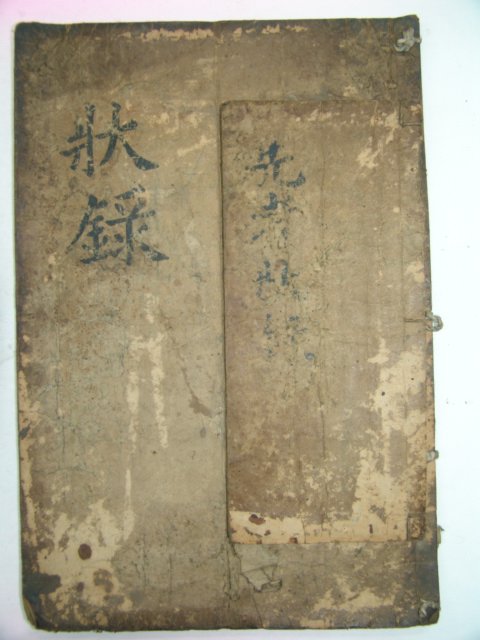 先考狀錄
狀錄